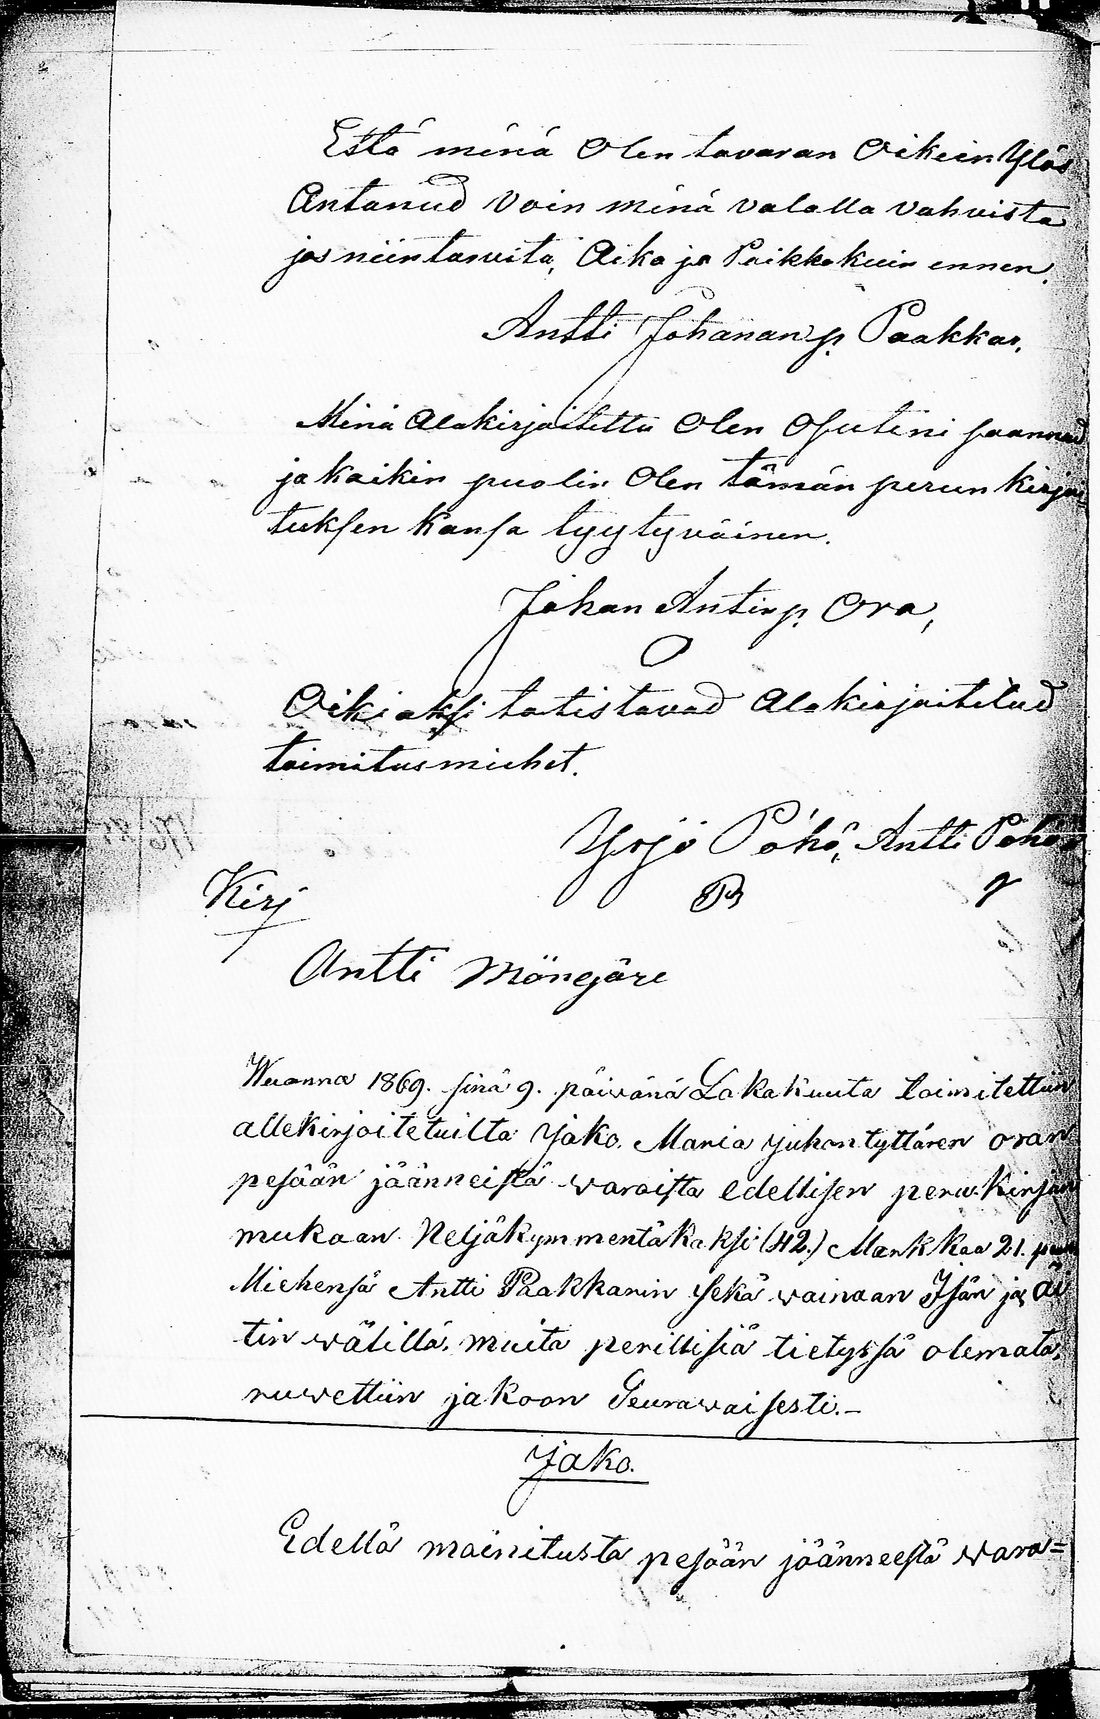 Että minä Olen tavaran Oikein Ylös
Antanud Voin minä valalla vahvista
jos niin tarvita, Aika ja Paikka kuin ennen.
Antti Johanan p. Paakkar.
Minä Alakirjoitettu Olen Osuteni saannud
ja kaikin puolin Olen tämän perun kirjoi-
tuksen Kansa tyytyväinen.
Johan Antinp. Ora,
Oikiaksi totistavad Alakirjoitetud
toimitus miehet.
Yrjö Pöhö, Antti Pöhö
Kirj
Antti Möngäre
Wuonna 1869. sinä 9. päiwänä Lokakuuta toimitettiin
allekirjoitetuilta Jako. Maria Juhon tyttären oran
pesään jäänneistä waroista edellisen peru-Kirjan
mukaan Neljäkymmentäkaksi (42.) Markkaa 21. pen
Miehensä Antti Paakkarin sekä wainaan Isän ja Äi
tin wälillä, muita perillisiä tietyssä olemata,
ruwettiin jakoon Seurawaisesti.-
Jako.
Edellä mainitusta pesään jäänneestä wara=